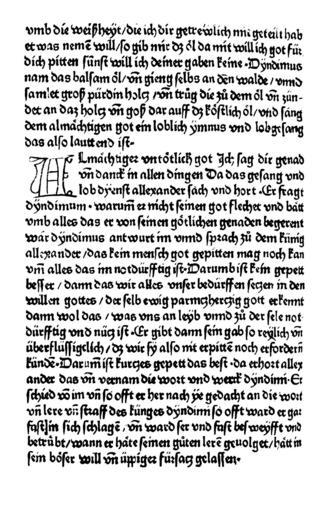 vmb die weißheyt/die ich dir getrewlich mit geteilt hab
et was nemē will/so gib mir dʒ öl da mit will ich got für
dich pitten sünst will ich deiner gaben keine · Dyndimus
nam das balsam öl/vñ gieng selbs an den walde/vmd
samlet groß pürdin holcʒ/vñ trüg die zů dem öl vñ zün-
det an daʒ holcʒ vñ goß dar auff dʒ köstlich öl/vnd sang
dem almächtigen got ein loblich ymnus vnd lobgesang
das also lautt end ist·
ALmächtiger vntötlich got Ich sag dir genad
vñ danck in allen dingen Da das gesang vnd
lob dynst allexander sach vnd hort · Er fragt
dyndimum · warumm er nicht seinen got flechet vnd bätt
vmb alles das er von seinen götlichen genaden begerent
wär dyndimus antwurt im vnnd sprach zů dem künig
allexander/das kein mensch got gepitten mag noch kan
vm̄ alles das im notdürfftig ist·Darumb ist kein gepett
besser/dann das wir alles vnser bedürffen seczen in den
willen gottes/der selb ewig parmcʒhercʒig gott erkennt
dann wol das/was vns an leyb vnnd zů der sele not
dürfftig vnd nücʒ ist·Er gibt dann sein gab so reylich vñ
überflüssigelich/dʒ wir sy also nit erpittē noch erfordern
künde·Darum̄ ist kurcʒes gepett das best·da erhort allex
ander das vñ vernam die wort vnd werck dyndimi·Er
schied vō im vñ so offt er her nach ye gedacht an die wort
vñ lere vñ straff des künges dyndimi so offt ward er gar
fast in sich schlagē/vñ ward ser vnd fast besweyfft vnd
betrübt/wann er häte seinen güten lerē geuolget/hätt in
sein böser will vñ üppiger fürsacʒ gelassen·